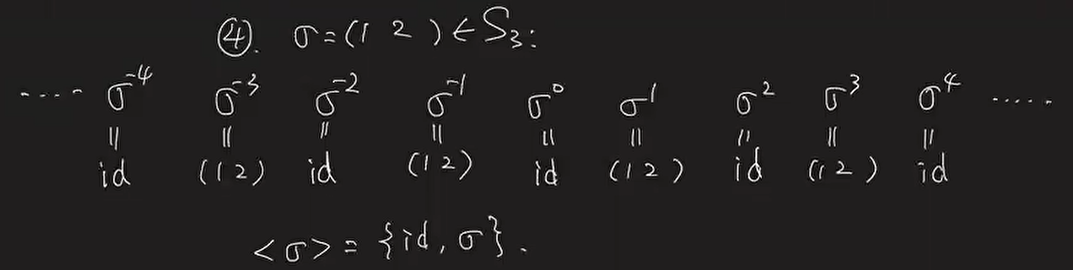 ④. σ=(1 2)∈S₃:
..... σ⁻⁴ σ⁻³ σ⁻² σ⁻¹ σ⁰ σ¹ σ² σ³ σ⁴ .....
|| || || || || || || || ||
id (1 2) id (1 2) id (1 2) id (1 2) id
<σ> = {id, σ}.